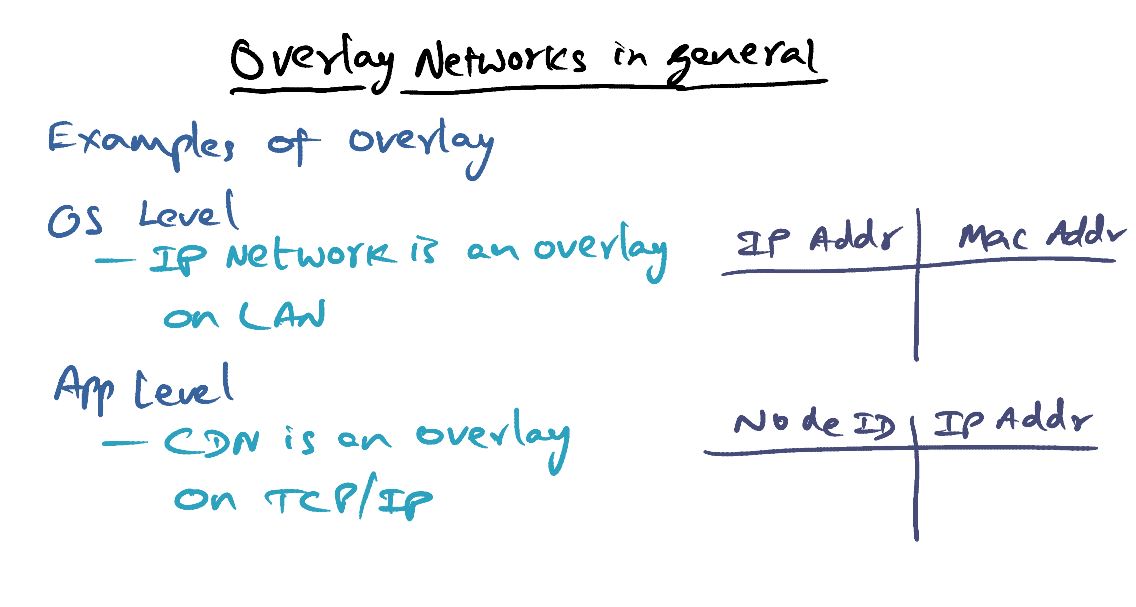 Overlay Networks in general
Examples of overlay
OS Level
— IP Network is an overlay
on LAN
IP Addr | Mac Addr
App Level
— CDN is an overlay
on TCP/IP
Node ID | IP Addr